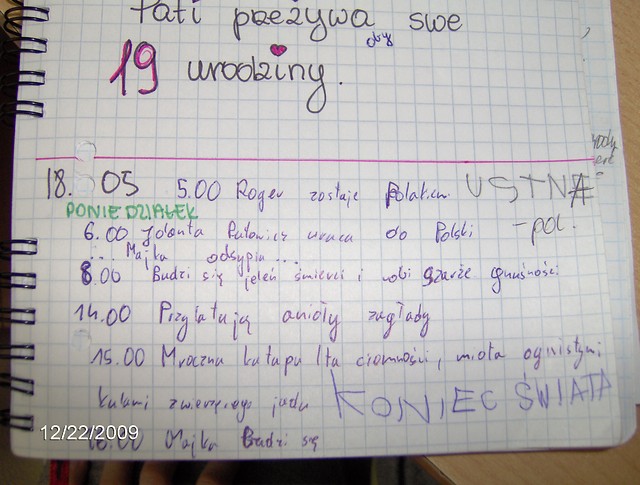 Tati przeżywa swe
oby
19 urodziny.
18. 05 5.00 Roger zostaje Polakiem USTNA
PONIEDZIAŁEK
6.00 Jolanta Rutowicz wraca do Polski - pol.
... Majka odsypia ...
8.00 Budzi się jeleń śmierci i robi szarże gnuśności
14.00 Przylatują anioły zagłady
15.00 Mroczna katapulta ciemności, miota ognistymi
kulami zwierzęcego jadu KONIEC ŚWIATA
16.00 Majka Budzi się
12/22/2009